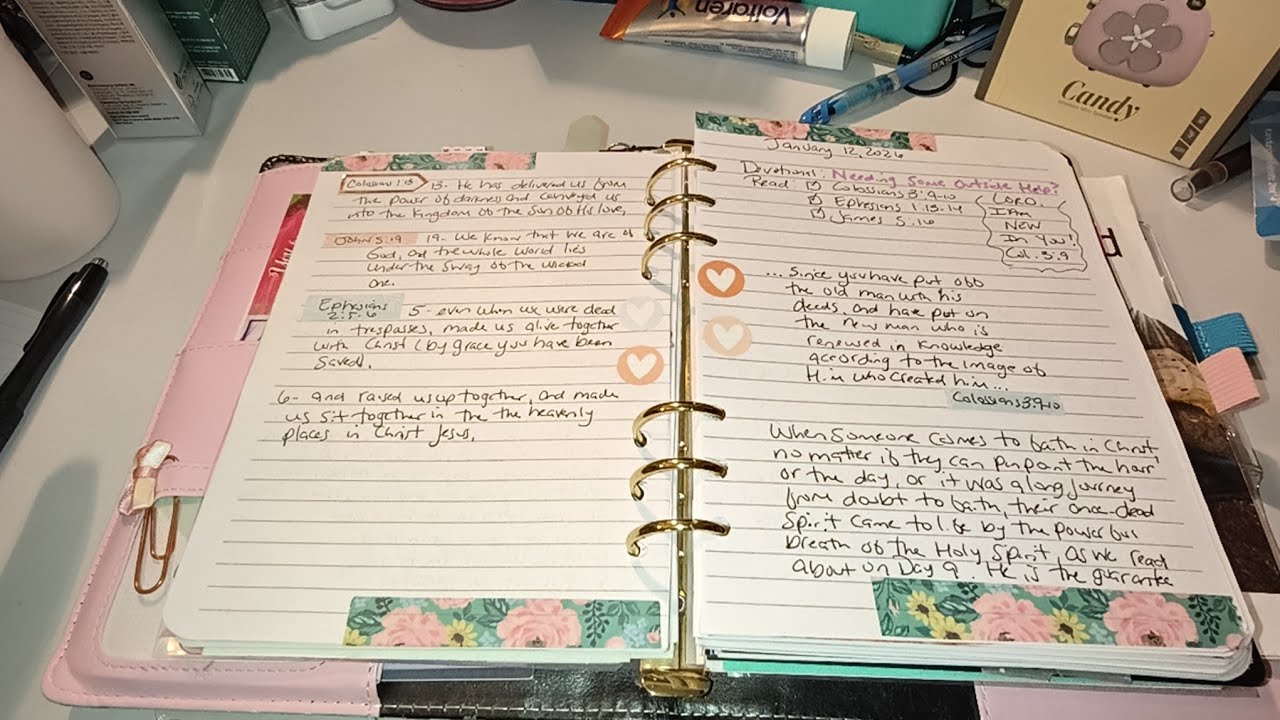 Voltaren
Candy
Colossians 1:13 13- He has delivered us from
the power of darkness and conveyed us
into the Kingdom of the Son of His love,
John 5:19 19- We know that we are of
God, and the whole world lies
under the sway of the wicked
one.
Ephesians 2:5-6 5- even when we were dead
in trespasses, made us alive together
with Christ (by grace you have been
saved.
6- and raised us up together, and made
us sit together in the the heavenly
places in Christ Jesus.
January 12, 2026
Devotional: Needing Some Outside Help?
Read Colossians 3:9-10
Ephesians 1:13-14
James 5:16
LORD,
I Am
New
In You!
Col. 3:9
... Since you have put off
the old man with his
deeds, and have put on
the new man who is
renewed in knowledge
according to the image of
Him who created him...
Colossians 3:9-10
When someone comes to faith in Christ,
no matter if they can pinpoint the hour
or the day, or it was a long journey
from doubt to faith, their once-dead
Spirit came to life by the powerful
breath of the Holy Spirit, as we read
about on Day 9. He is the guarantee